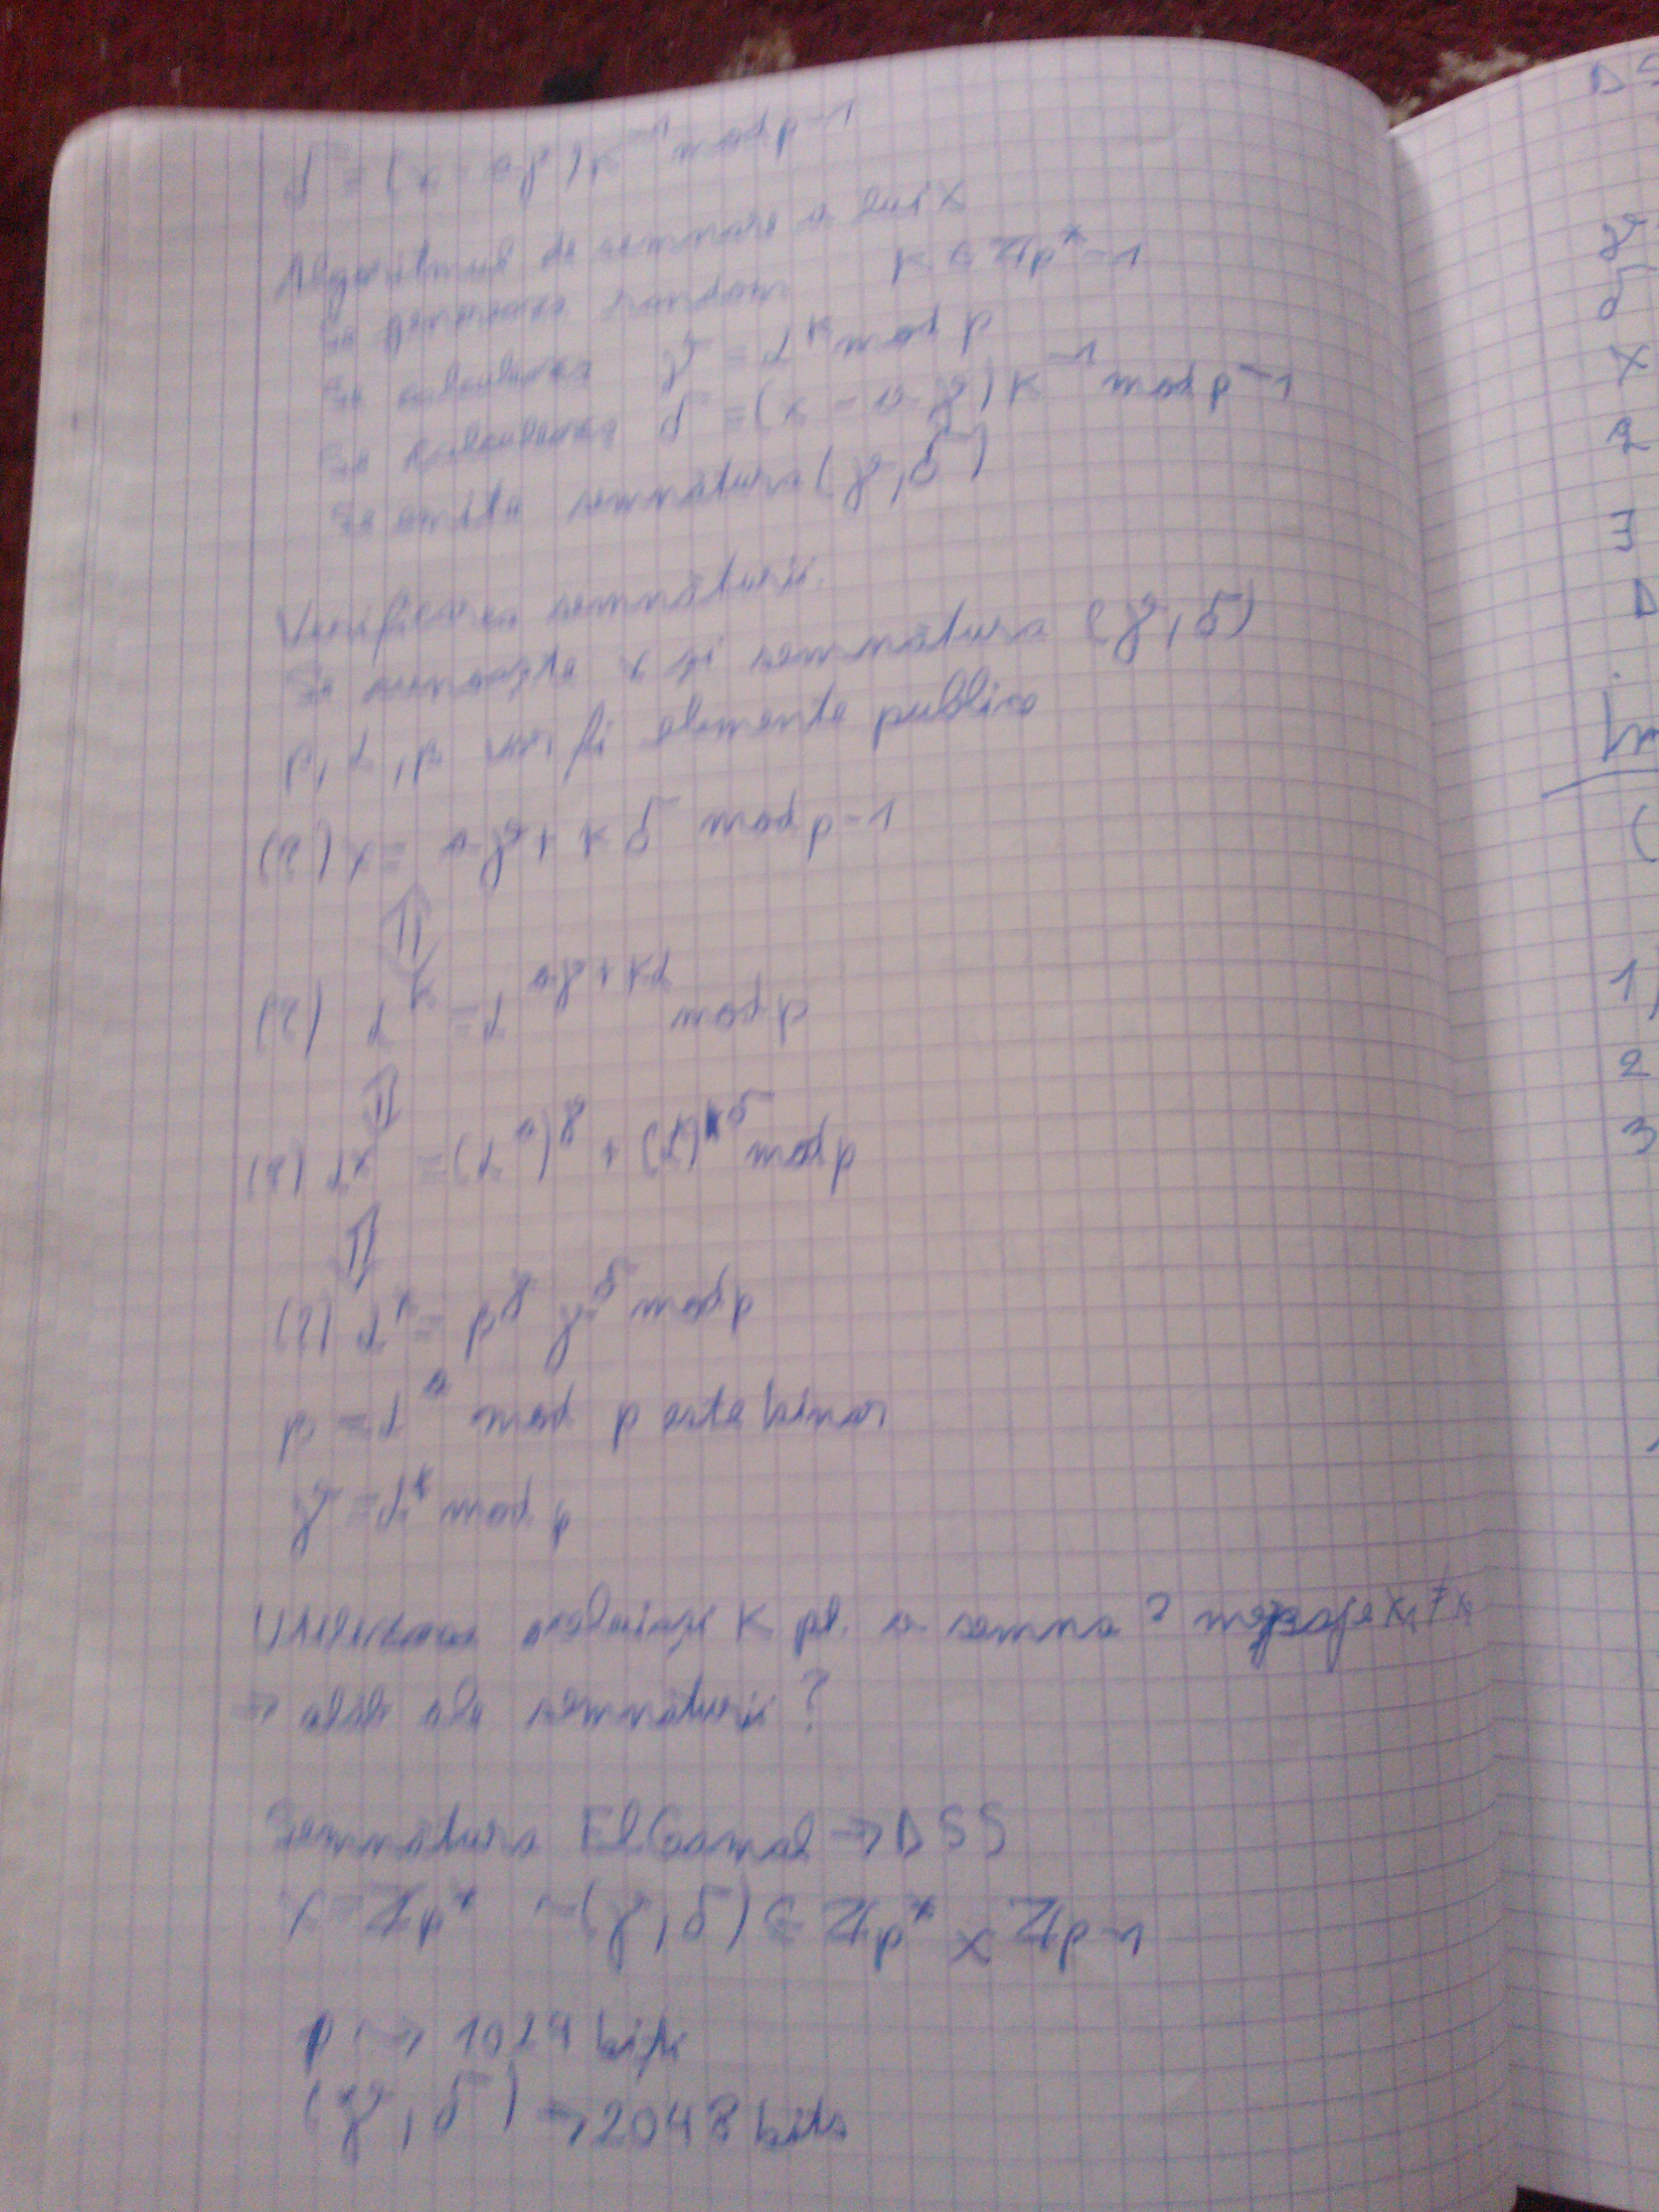 δ = (x - aγ) k⁻¹ mod p-1
Algoritmul de semnare a lui x
Se generează random k ∈ Zp*-1
Se calculează γ = α^k mod p
Se calculează δ = (x - a γ) k⁻¹ mod p-1
Se emite semnătura (γ, δ)
Verificarea semnăturii.
Se cunoaște x și semnătura (γ, δ)
p, α, β vor fi elemente publice
(2) x = aγ + kδ mod p-1
⇕
(2) α^x = α^(aγ + kδ) mod p
⇕
(2) α^x = (α^a)^γ + (α^k)^δ mod p
⇕
(2) α^x = β^γ γ^δ mod p
β = α^a mod p este
γ = α^k mod p
K pt. a semna 2 mesaje x₁ ≠ x₂
⇒ ale semnăturii ?
Semnătura ElGamal → DSS
x ∈ Zp* → (γ, δ) ∈ Zp* x Zp-1
p → 1024 biți
(γ, δ) → 2048 bits
DS
γ
δ
x
2
3
D
(
1)
2
3